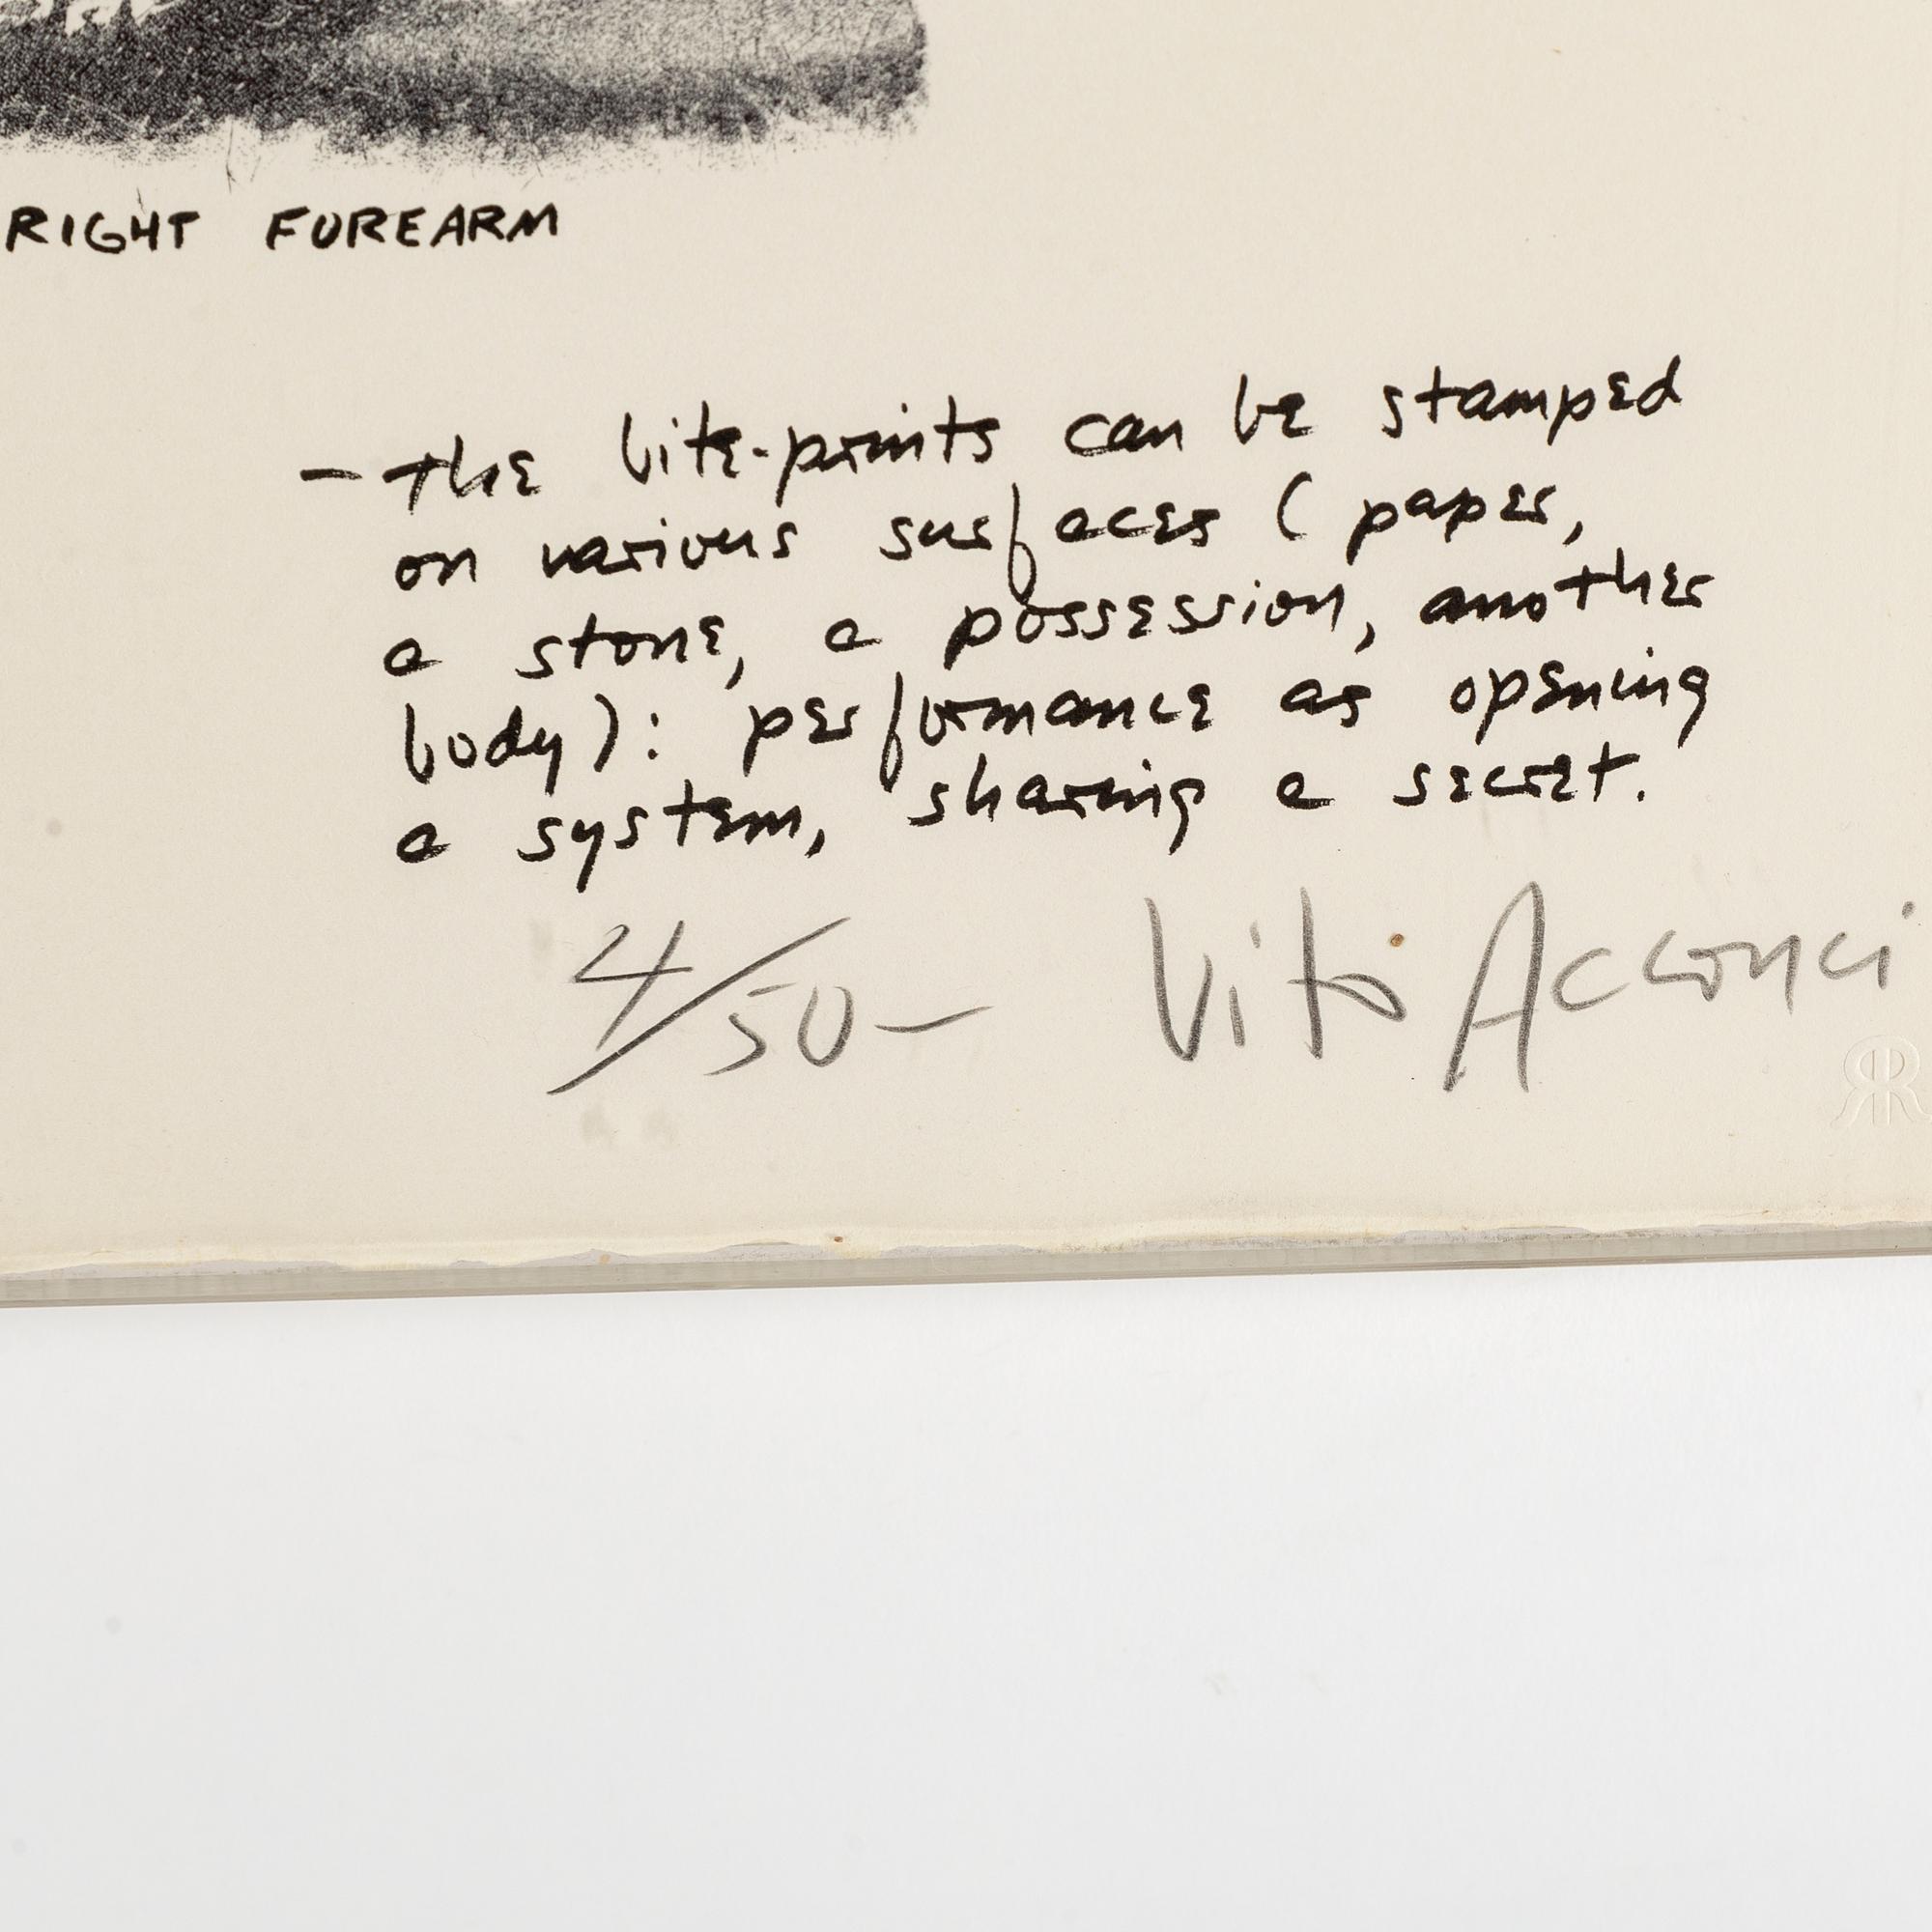 RIGHT FOREARM
— the bite-prints can be stamped
on various surfaces (paper,
a stone, a possession, another
body): performance as opening
a system, sharing a secret.
4/50— Vito Acconci
RR